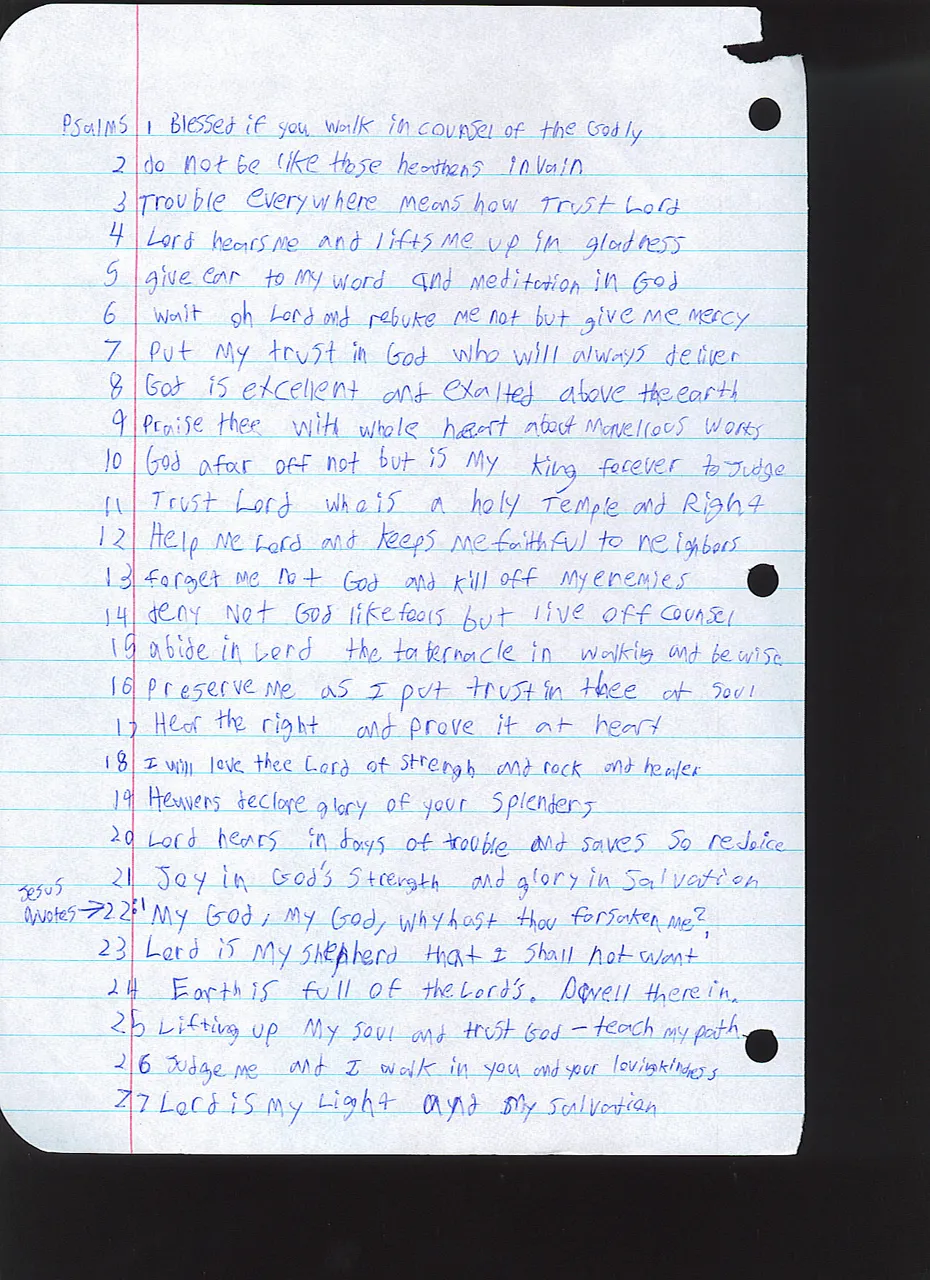 Psalms 1 Blessed if you walk in counsel of the Godly
2 do not be like those heathens in vain
3 Trouble everywhere means how Trust Lord
4 Lord hears me and lifts me up in gladness
5 give ear to my word and meditation in God
6 wait oh Lord and rebuke me not but give me mercy
7 Put My trust in God who will always deliver
8 God is excellent and exalted above the earth
9 Praise thee with whole heart about Marvellous Works
10 God afar off not but is My King forever to Judge
11 Trust Lord who is a holy Temple and Right
12 Help Me Lord and keeps me faithful to neighbors
13 forget me not God and kill off my enemies
14 deny Not God like fools but live off counsel
15 abide in Lord the tabernacle in walking and be wise
16 Preserve Me as I put trust in thee at soul
17 Hear the right and prove it at heart
18 I will love thee Lord of strengh and rock and healer
19 Heavers declare glory of your Splenders
20 Lord hears in days of trouble and saves So rejoice
21 Joy in God's Strength and glory in Salvation
Jesus
Quotes → 22:1 My God, My God, why hast thou forsaken me?
23 Lord is My shepherd that I shall not want
24 Earth is full of the Lord's. Dwell therein.
25 Lifting up My soul and trust God - teach my path.
26 Judge me and I walk in you and your lovingkindness
27 Lord is my Light and My salvation